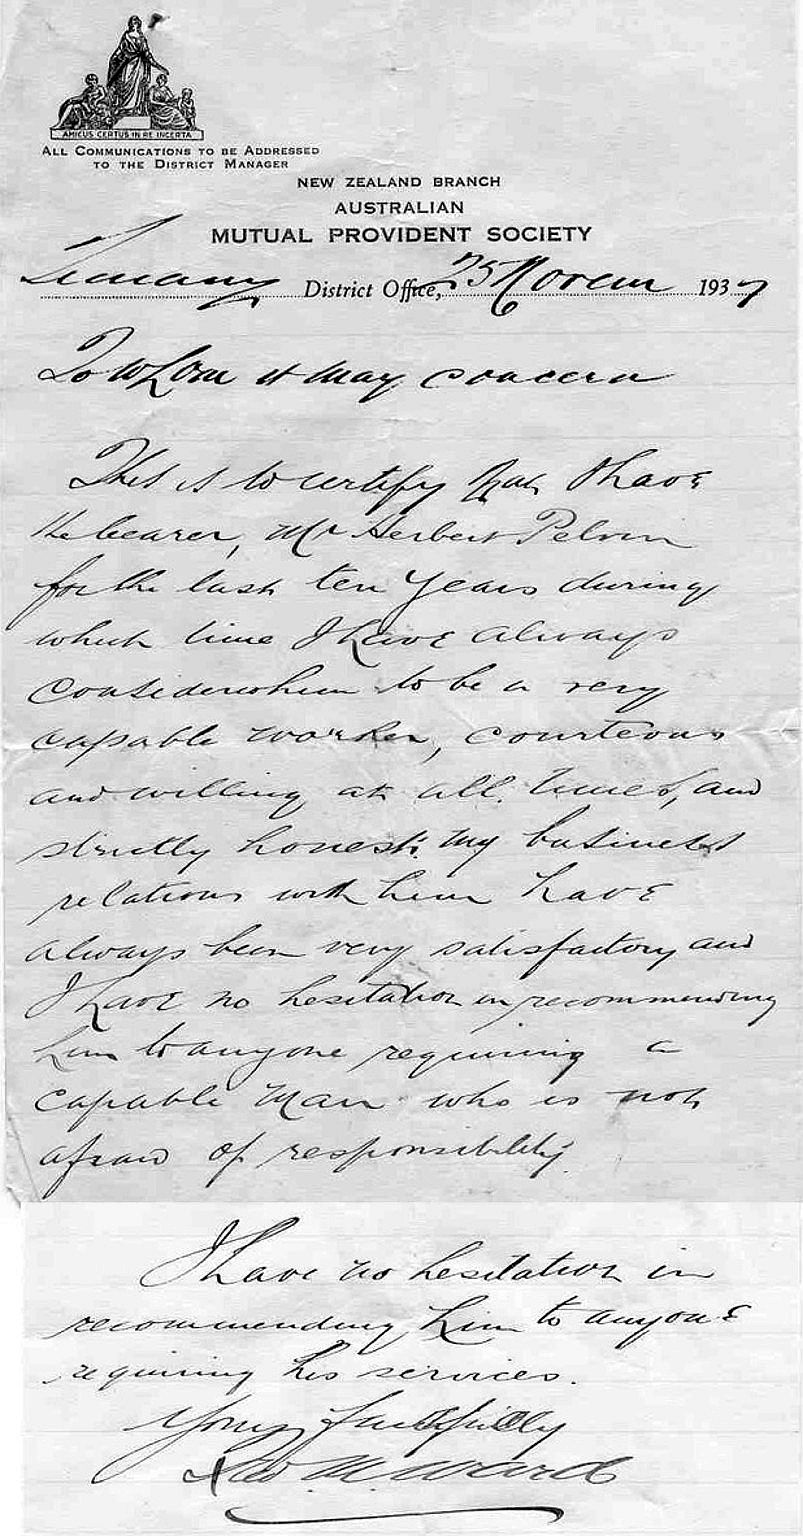 AMICUS CERTUS IN RE INCERTA
ALL COMMUNICATIONS TO BE ADDRESSED
TO THE DISTRICT MANAGER
NEW ZEALAND BRANCH
AUSTRALIAN
MUTUAL PROVIDENT SOCIETY
District Office, 25 Novem 1937
To whom it may concern
This is to certify that I have
the bearer, Mr Herbert Pelvin
for the last ten years during
which time I have always
considered him to be a very
capable worker, courteous
and willing at all times, and
strictly honest. My business
relations with him have
always been very satisfactory and
I have no hesitation in recommending
him to anyone requiring a
capable man who is not
afraid of responsibility.
I have no hesitation in
recommending him to anyone
requiring his services.
Yours faithfully
M. Ward